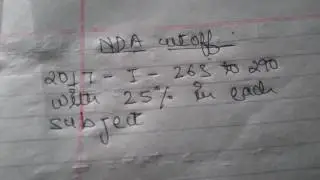 NDA cutoff.
2017 - I - 265 to 290
with 25% in each
subject